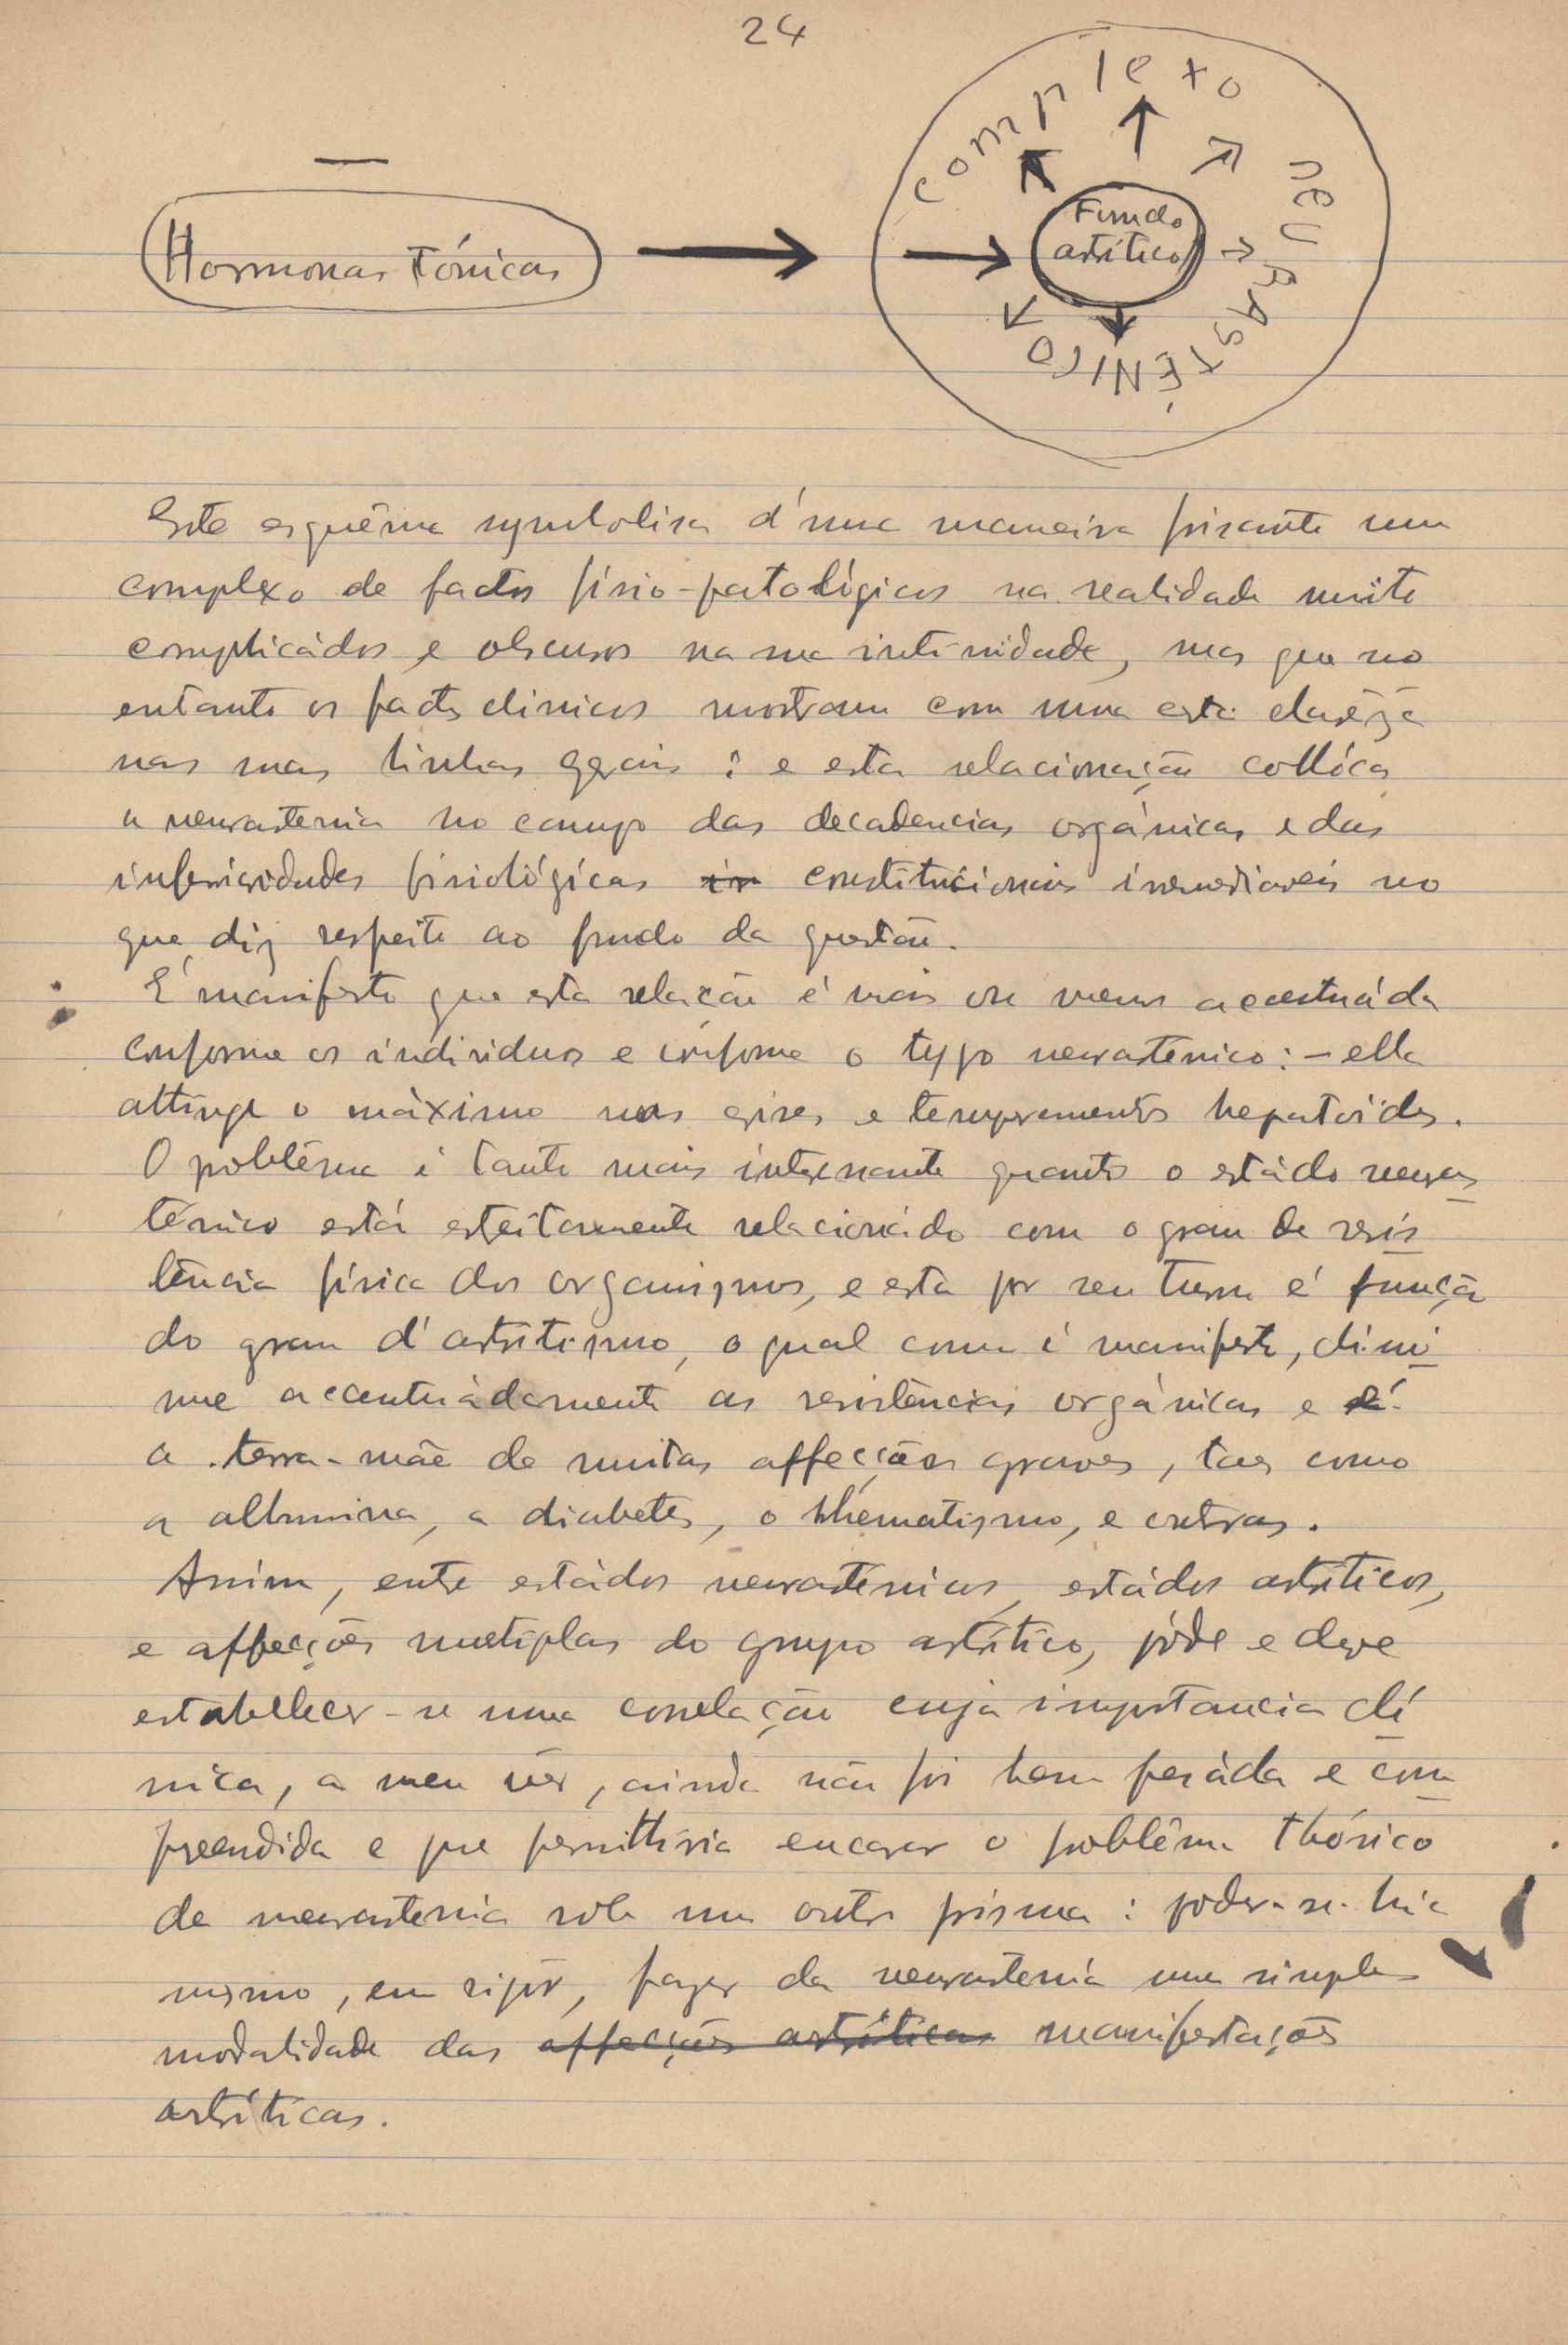 24
complexo neurASTÉNICO
Fundo
artrítico
Hormonas Tónicas
Este esquêma symbolisa d'uma maneira frisante um
complexo de factos físio-patológicos na realidade muito
complicádos e obscuros na sua intimidade, mas que no
entanto os factos clinicos mostram com uma certa clarêza
nas suas linhas geraes : e esta relacionação collóca
a neurastenia no campo das decadencias orgánicas e das
inferioridades fisiológicas constitucionais irremediaveis no
que diz respeito ao fundo da questão.
É manifesto que esta relação é mais ou menos accentuáda
conforme os individuos e conforme o typo neurasténico : – ella
attinge o máximo nas crises e temperamentos hepatoides.
O problêma é tanto mais interessante quanto o estádo neuras
ténico está estreitamente relacionádo com o grau de resis
tência física dos organismos, e esta por seu turno é função
do grau d'artritismo, o qual como é manifesto, dimi
nue accentuádamente as resistências orgánicas e é
a terra-mãe de muitas affecções graves, taes como
a albumina, a diabetes, o rhematismo, e outras.
Assim, entre estádos neurasténicos, estádos artríticos,
e affecções multiplas do grupo artrítico, póde e deve
estabellecer-se uma correlação cuja importancia clí
nica, a meu vêr, ainda não foi bem pesáda e com
preendida e que permittiria encarar o problêma theórico
da neurastenia sob um outro prisma : poder-se-hia
mesmo, em rigôr, fazer da neurastenia uma simples
modalidade das affecções artríticas manifestações
artríticas.